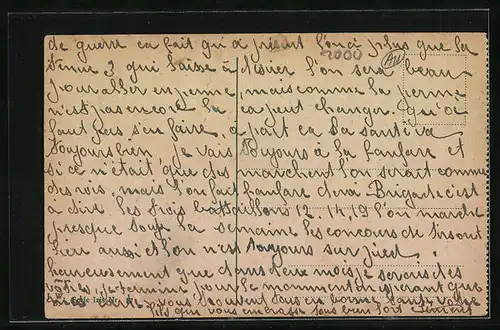 de guerre ca fait qui a prisent l'on a plus que la
tenue 3 qui laisse a désirer l'on sera beau
pour aller en perme, mais comme la perme
n'est pas encore la ca peut changer. qu'a
faut pas s'en faire, a part ca la santé va
toujours bien je vais toujours a la fanfare et
si ce n'était que des marches l'on serait comme
des rois, mais l'on fait fanfare de Brigade c'est
a dire les trois battaillons 12. 14. 19 l'on marche
presque toute la semaine les concours de tir sont
bien aussi et l'on n'est toujours sur pied.
heureusement que dans deux mois je serais des
votres, je termine pour le momment en esperant que
vous trouvent tous en bonne santé votre
fils qui vous embrasse tous bien fort
2000